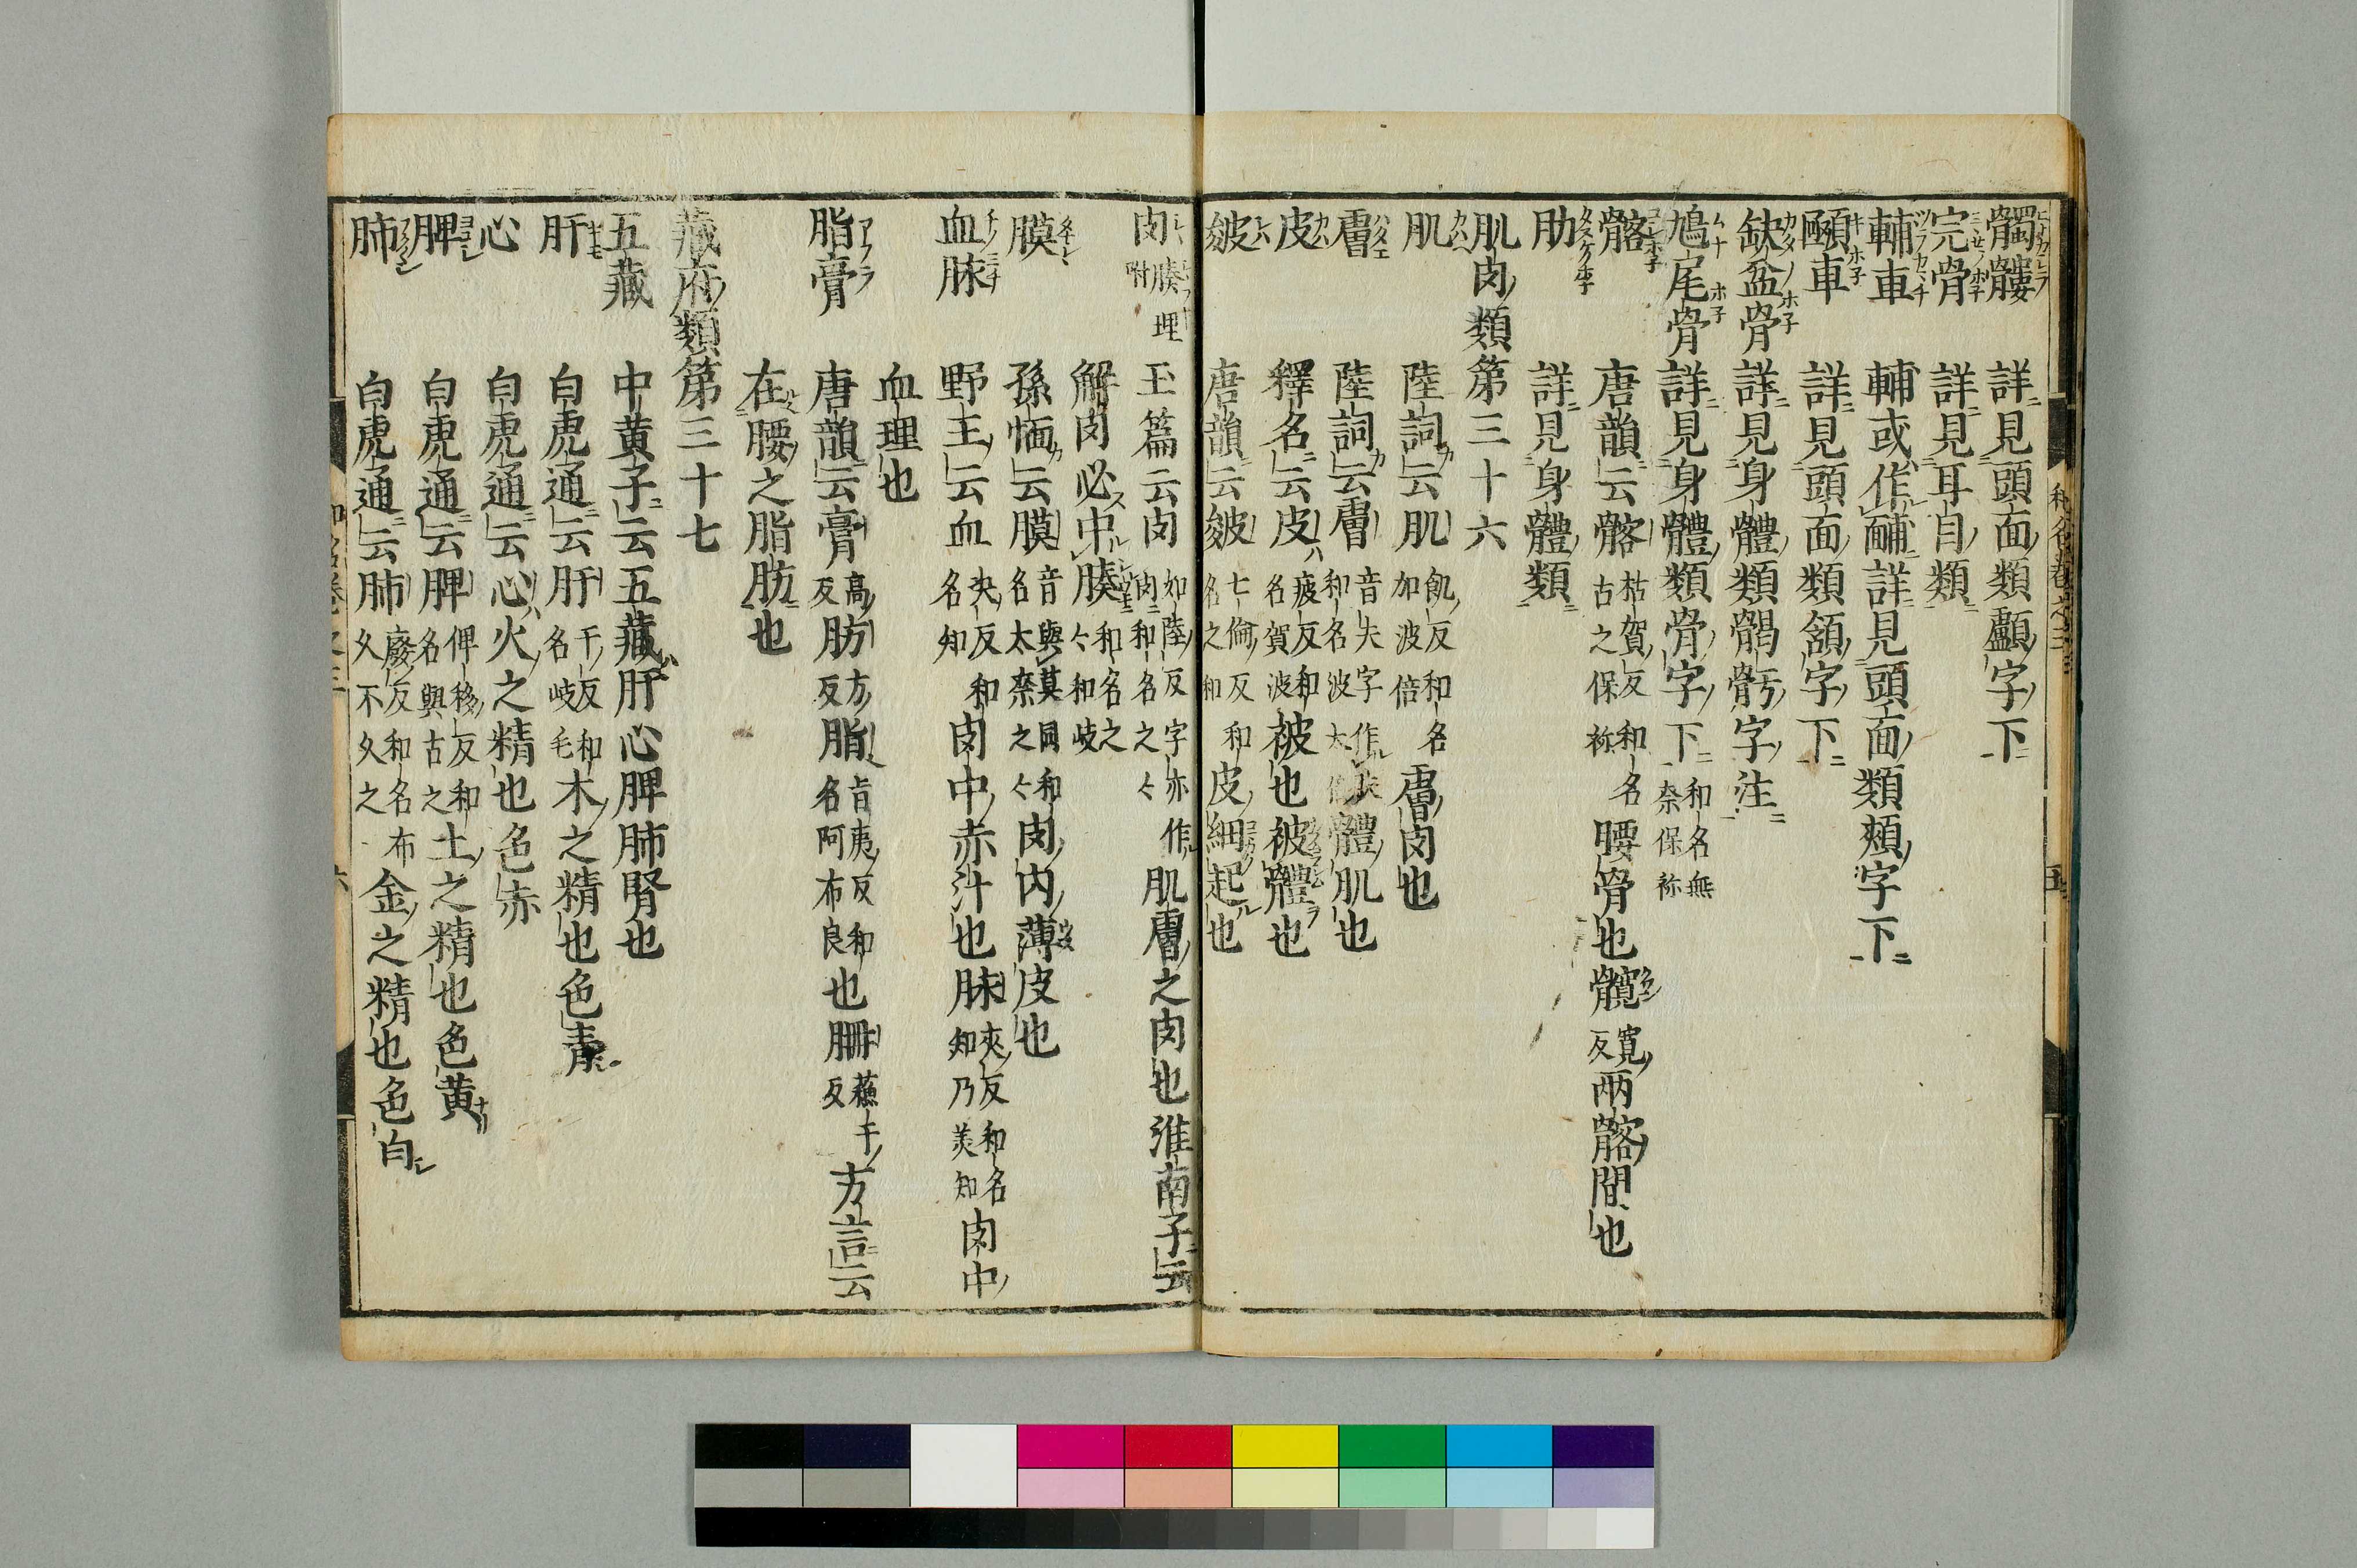 髑髏 詳見頭面類顱字下
完骨 詳見耳目類
輔車 輔或作䩉詳見頭面類頰字下
頥車 詳見頭面類頷字下
缺盆骨 詳見身體類䯏骬字注
鳩尾骨 詳見身體類骨字下 和名無奈保祢
髂 唐韻云髂 枯賀反和名古之保祢 腰骨也髖 寛反 兩髂間也
肋 詳見身體類
肌肉類第三十六
肌 陸詞云肌 飢反和名加波倍 膚肉也
膚 陸詞云膚 音夫字作 和名波太 體肌也
皮 釋名云皮 疲反和名賀波 被也被體也
皴 唐韻云皴 七倫反和名之和 皮細起也
肉 腠理附 玉篇云肉 如陸反字亦作肉和名之々 肌膚之肉也淮南子云
解肉必中腠 和名之々和岐
膜 孫愐云膜 音與莫同和名太奈之々 肉内薄皮也
血脉 野王云血 决反和名知 肉中赤汁也脉 夾反和名知乃美知 肉中
血理也
脂膏 唐韻云膏 高反 肪 方反 脂 旨夷反和名阿布良 也 𦙱 蘓干反 方言云
在腰之脂肪也
藏府類第三十七
五藏 中黄子云五藏肝心脾肺腎也
肝 白虎通云肝 干反和名岐毛 木之精也色青
心 白虎通云心火之精也色赤
脾 白虎通云脾 俾移反和名與古之 土之精也色黄
肺 白虎通云肺 廢反和名布久不久之 金之精也色白
和名巻之三
五
六